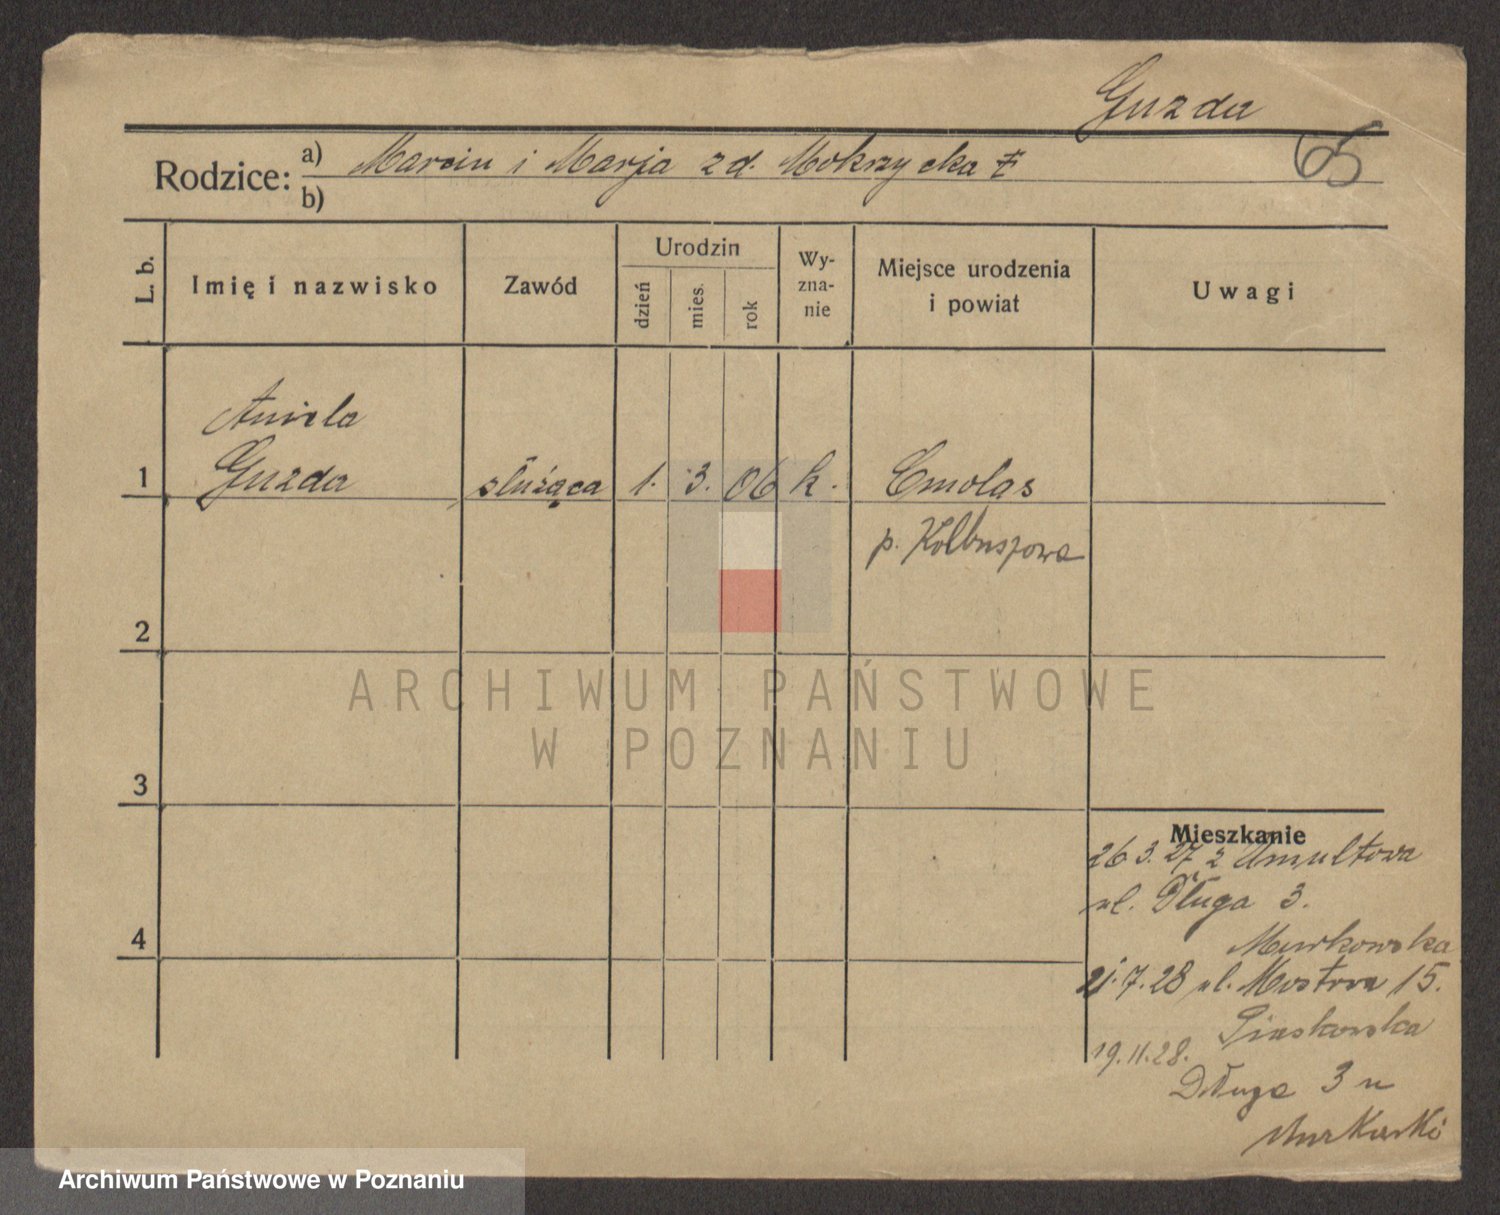 Guzda
65
Rodzice: a) Marcin i Marja zd. Mokrzycka
b)
L. b. Imię i nazwisko Zawód Urodzin dzień mies. rok Wy-zna-nie Miejsce urodzenia i powiat Uwagi
Aniela
1 Guzda służąca 1. 3. 06 k. Cmolas
p. Kolbuszowa
2
ARCHIWUM PAŃSTWOWE
W POZNANIU
3
Mieszkanie
26 3. 27 z Umultowa
ul. Długa 3.
Murkowska
4
21.7.28 ul. Mostowa 15.
Piaskowska
19.11.28.
Długa 3 u
Murkowski
Archiwum Państwowe w Poznaniu